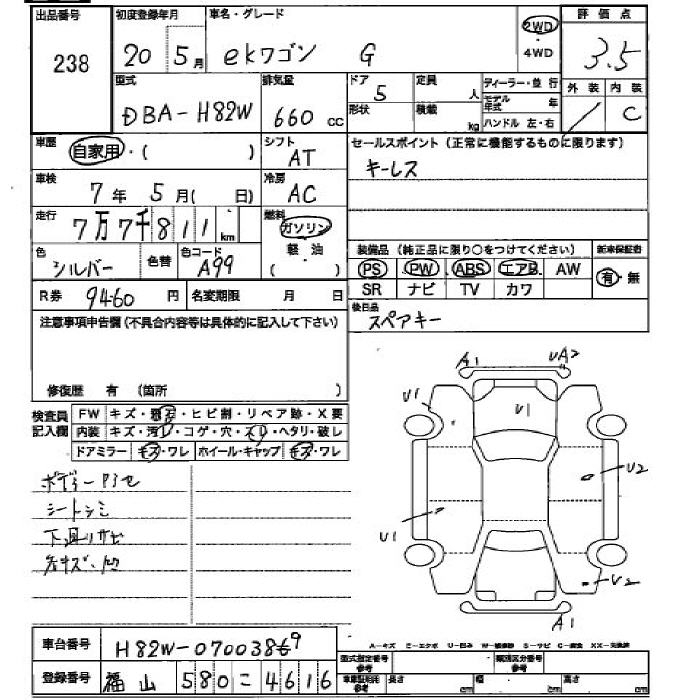 出品番号 初度登録年月 車名・グレード 評価点
238 20 5月 ekワゴン G 2WD ・4WD 3.5
型式 排気量 ドア 定員 ディーラー・並行 外装 内装
DBA-H82W 660 cc 5 人 モデル年式 年 C
形状 積載 kg ハンドル 左・右
車歴 自家用・( ) シフト AT セールスポイント (正常に機能するものに限ります)
車検 7年 5月( 日) 冷房 AC キーレス
走行 7万7千811km 燃料 ガソリン 軽油 ( )
色 シルバー 色替 色コード A99 装備品 (純正品に限り○をつけてください) 新車保証書
PS PW ABS エアB AW 有・無
R券 9460円 名変期限 月 日 SR ナビ TV カワ
注意事項申告欄(不具合内容等は具体的に記入して下さい) 後日品 スペアキー
修復歴 有 (箇所 )
検査員記入欄 FW キズ・・ヒビ割・リペア跡・X要
内装 キズ・汚レ・コゲ・穴・スレ・ヘタリ・破レ
ドアミラー キズ・ワレ ホイール・キャップ キズ・ワレ
A1 UA2
U1 U1
ボディー
シートシミ U2
下廻りサビ U1
各キズ・凹 U2
A1
A-キズ E-エクボ U-凹み S-サビ C-腐食 XX-交換済
車台番号 H82W-0700386 9
登録番号 福山 580 こ 4616
型式指定番号 参考 類別区分番号 参考
車庫証明用 参考 長さ cm 幅 cm 高さ cm